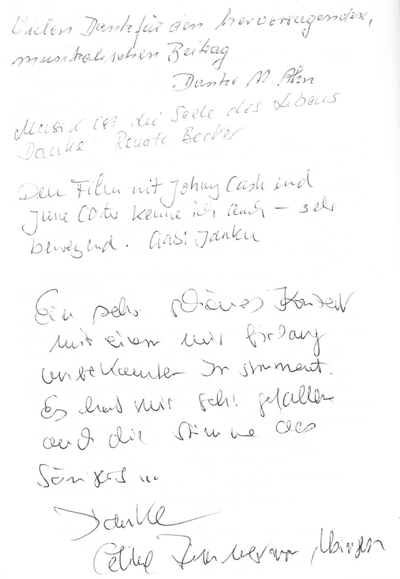 Vielen Dank für den hervorragenden,
musikalischen Beitrag
Danke M. Ahn
Musik ist die Seele des Lebens
Danke Renate Becker
Den Film mit Johny Cash und
June Cater kenne ich auch – sehr
bewegend. Gabi Janku
Ein sehr schönes Konzert
mit einem mir bislang
unbekannten Instrument.
Es hat mir sehr gefallen
auch die Stimme des
Sängers ...
Danke